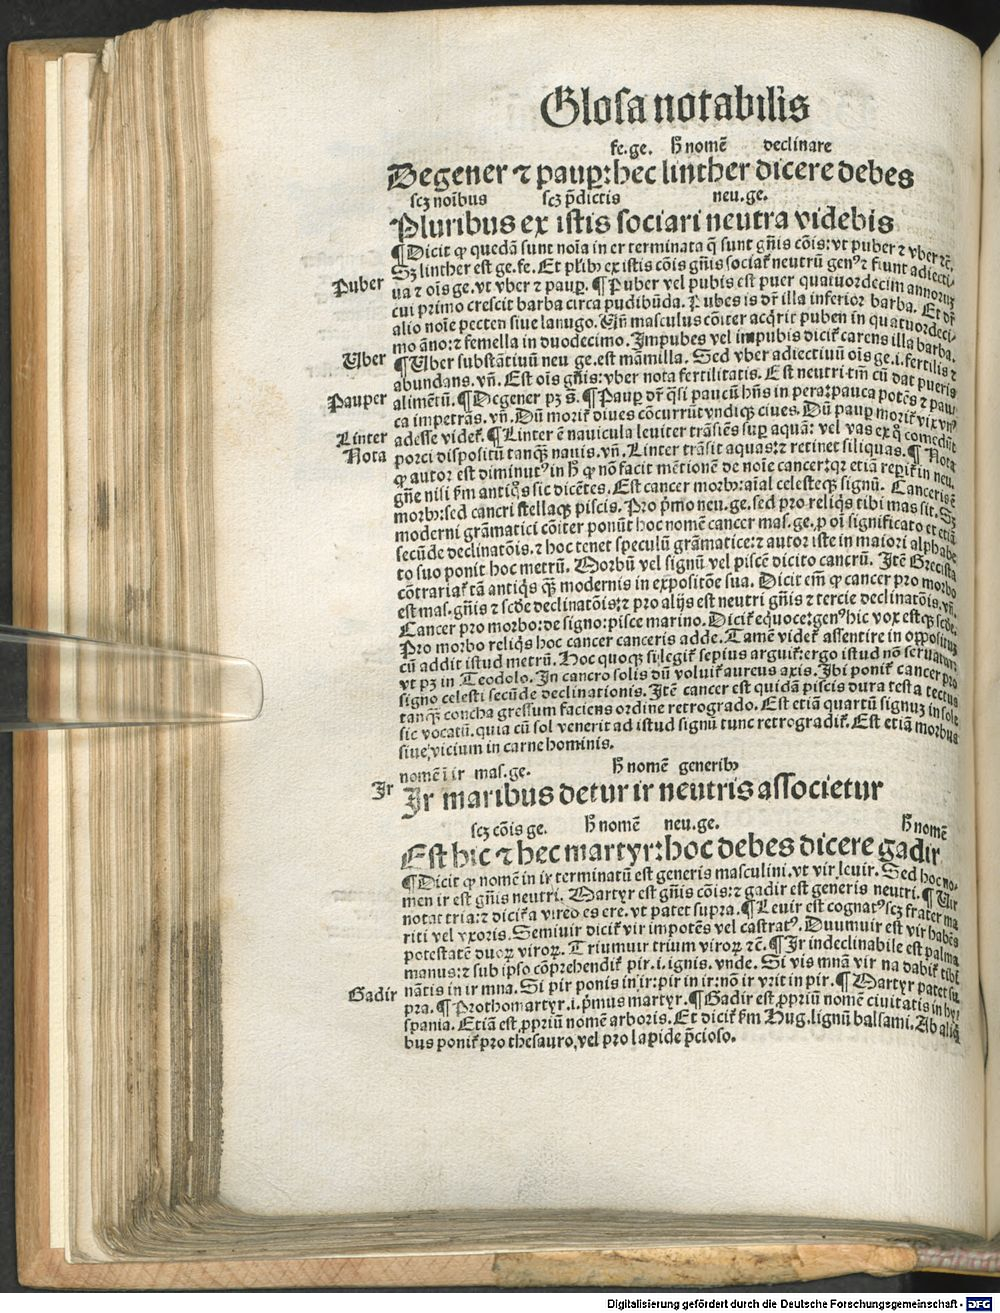 Glosa notabilis
fe.ge. ħ nomē declinare
Degener ⁊ paup̄:hec linther dicere debes
scꝫ noībus scꝫ p̄dictis neu.ge.
Pluribus ex istis sociari neutra videbis
¶Dicit ꝙ quedā sunt noīa in er terminata q̄ sunt gn̄is cōis:vt puber ⁊ vber ⁊c̄.
Sꝫ linther est ge.fe. Et pl̄ibꝰ ex istis cōis gn̄is sociat̉ neutrū genꝰ ⁊ fiunt adiecti-
Puber
ua ⁊ oīs ge.vt vber ⁊ paup̄. ¶Puber vel pubis est puer quatuordecim annorum
cui primo crescit barba circa pudibūda. Pubes is dr̄ illa inferior barba. Et dr̄
alio noīe pecten siue lanugo. Vn̄ masculus cōiter acq̄rit puben in quatuordeci-
mo āno:⁊ femella in duodecimo. Impubes vel impubis dicit̉ carens illa barba.
Vber
¶Vber substātiuū neu ge.est māmilla. Sed vber adiectiuū oīs ge.i.fertilis ⁊
abundans.vn̄. Est oīs gn̄is:vber nota fertilitatis. Est neutri tm̄ cū dat pueris
Pauper
alimētū. ¶Degener pꝫ s̄. ¶Paup̄ dr̄ q̄si paucū hn̄s in pera:pauca potēs ⁊ pau
ca impetrās.vn̄. Dū morit̉ diues cōcurrūt vndiqꝫ ciues. Dū paup̄ morit̉ vix vnꝰ
Linter
adesse videt̉. ¶Linter ē nauicula leuiter trāsiēs sup̄ aquā: vel vas ex q̊ comedūt
Nota
porci dispositū tanqꝫ nauis.vn̄. Linter trāsit aquas:⁊ retinet siliquas. ¶Nota
ꝙ autor est diminutꝰ in ħ ꝙ nō facit mētionē de noīe cancer:qꝛ etiā rep̄it̉ in neu.
gn̄e nisi f̄m antiq̊s sic dicētes. Est cancer morbꝰ:aīal celesteqꝫ signū. Canceris ē
morbꝰ:sed cancri stellaqꝫ piscis. Pro p̄mo neu.ge.sed pro reliq̄s tibi mas sit. Sꝫ
moderni grāmatici cōiter ponūt hoc nomē cancer mas.ge.ꝓ oī significato et etiā
secūde declinatōis.⁊ hoc tenet speculū grāmatice:⁊ autor iste in maiori alphabe
to suo ponit hoc metrū. Morbū vel signū vel piscē dicito cancrū. Itē Grecista
cōtrariat̉ tā antiq̄s qꝫ modernis in expositōe sua. Dicit em̄ ꝙ cancer pro morbo
est mas.gn̄is ⁊ scd̄e declinatōis:⁊ pro alijs est neutri gn̄is ⁊ tercie declinatōis.vn̄.
Cancer pro morbo:de signo:pisce marino. Dicit̉ equoce:genꝰ hic vox estqꝫ scd̄e.
Pro morbo reliq̄s hoc cancer canceris adde. Tamē videt̉ assentire in oppositum
cū addit istud metrū. Hoc quoqꝫ si legit̉ sepius arguit̉:ergo istud nō seruatur.
vt pꝫ in Teodolo. In cancro solis dū voluit̉ aureus axis. Ibi ponit̉ cancer pro
signo celesti secūde declinationis. Itē cancer est quidā piscis dura testa tectus
tanqꝫ concha gressum faciens ordine retrogrado. Est etiā quartū signuꝫ in sole
sic vocatū.quia cū sol venerit ad istud signū tunc retrogradit̉. Est etiā morbus
siue vicium in carne hominis.
nomē ī ir mas.ge. ħ nomē generibꝰ
Ir
Ir maribus detur ir neutris associetur
scꝫ cōis ge. ħ nomē neu.ge. ħ nomē
Est hic ⁊ hec martyr:hoc debes dicere gadir
¶Dicit ꝙ nomē in ir terminatū est generis masculini.vt vir,leuir. Sed hoc no-
men ir est gn̄is neutri. Martyr est gn̄is cōis:⁊ gadir est generis neutri. ¶Vir
notat tria:⁊ dicit̉ a vireo es ere.vt patet supra. ¶Leuir est cognatꝰ scꝫ frater ma
riti vel vxoris. Semiuir dicit̉ vir impotēs vel castratꝰ. Duumuir est vir habēs
potestatē duoꝝ viroꝝ. Triumuir trium viroꝝ ⁊c̄. ¶Ir indeclinabile est palma
manus:⁊ sub ipso cōprehendit̉ pir.i.ignis.vnde. Si vis mnām vir na dabit̉ tibi
Gadir
nātis in ir mna. Si pir ponis in ir:pir in ir:nō ir vrit in pir. ¶Martyr patet su
pra. ¶Prothomartyr.i.p̄mus martyr. ¶Gadir est ꝓpriū nomē ciuitatis in hy
spania. Etiā est ꝓpriū nomē arboris. Et dicit̉ f̄m Hug.lignū balsami. Ab aliq̄
bus ponit̉ pro thesauro,vel pro lapide p̄cioso.
Digitalisierung gefördert durch die Deutsche Forschungsgemeinschaft - DFG